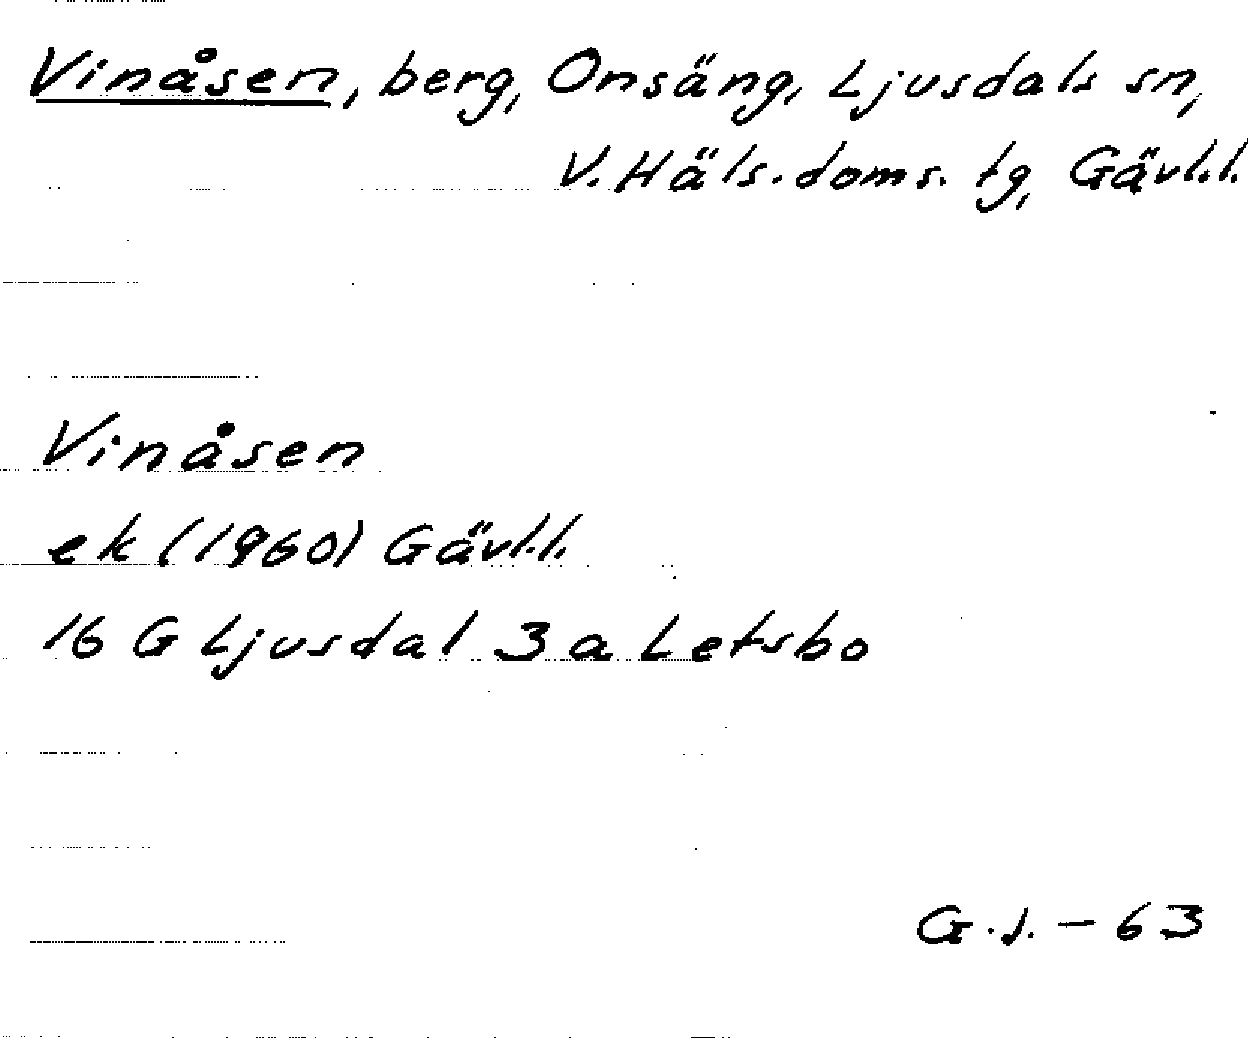 Vinåsen, berg, Onsäng, Ljusdals sn,
V. Häls. doms. tg, Gävl.l.
Vinåsen
ek (1960) Gävl.l.
16 G Ljusdal 3 a Letsbo
G.J. - 63